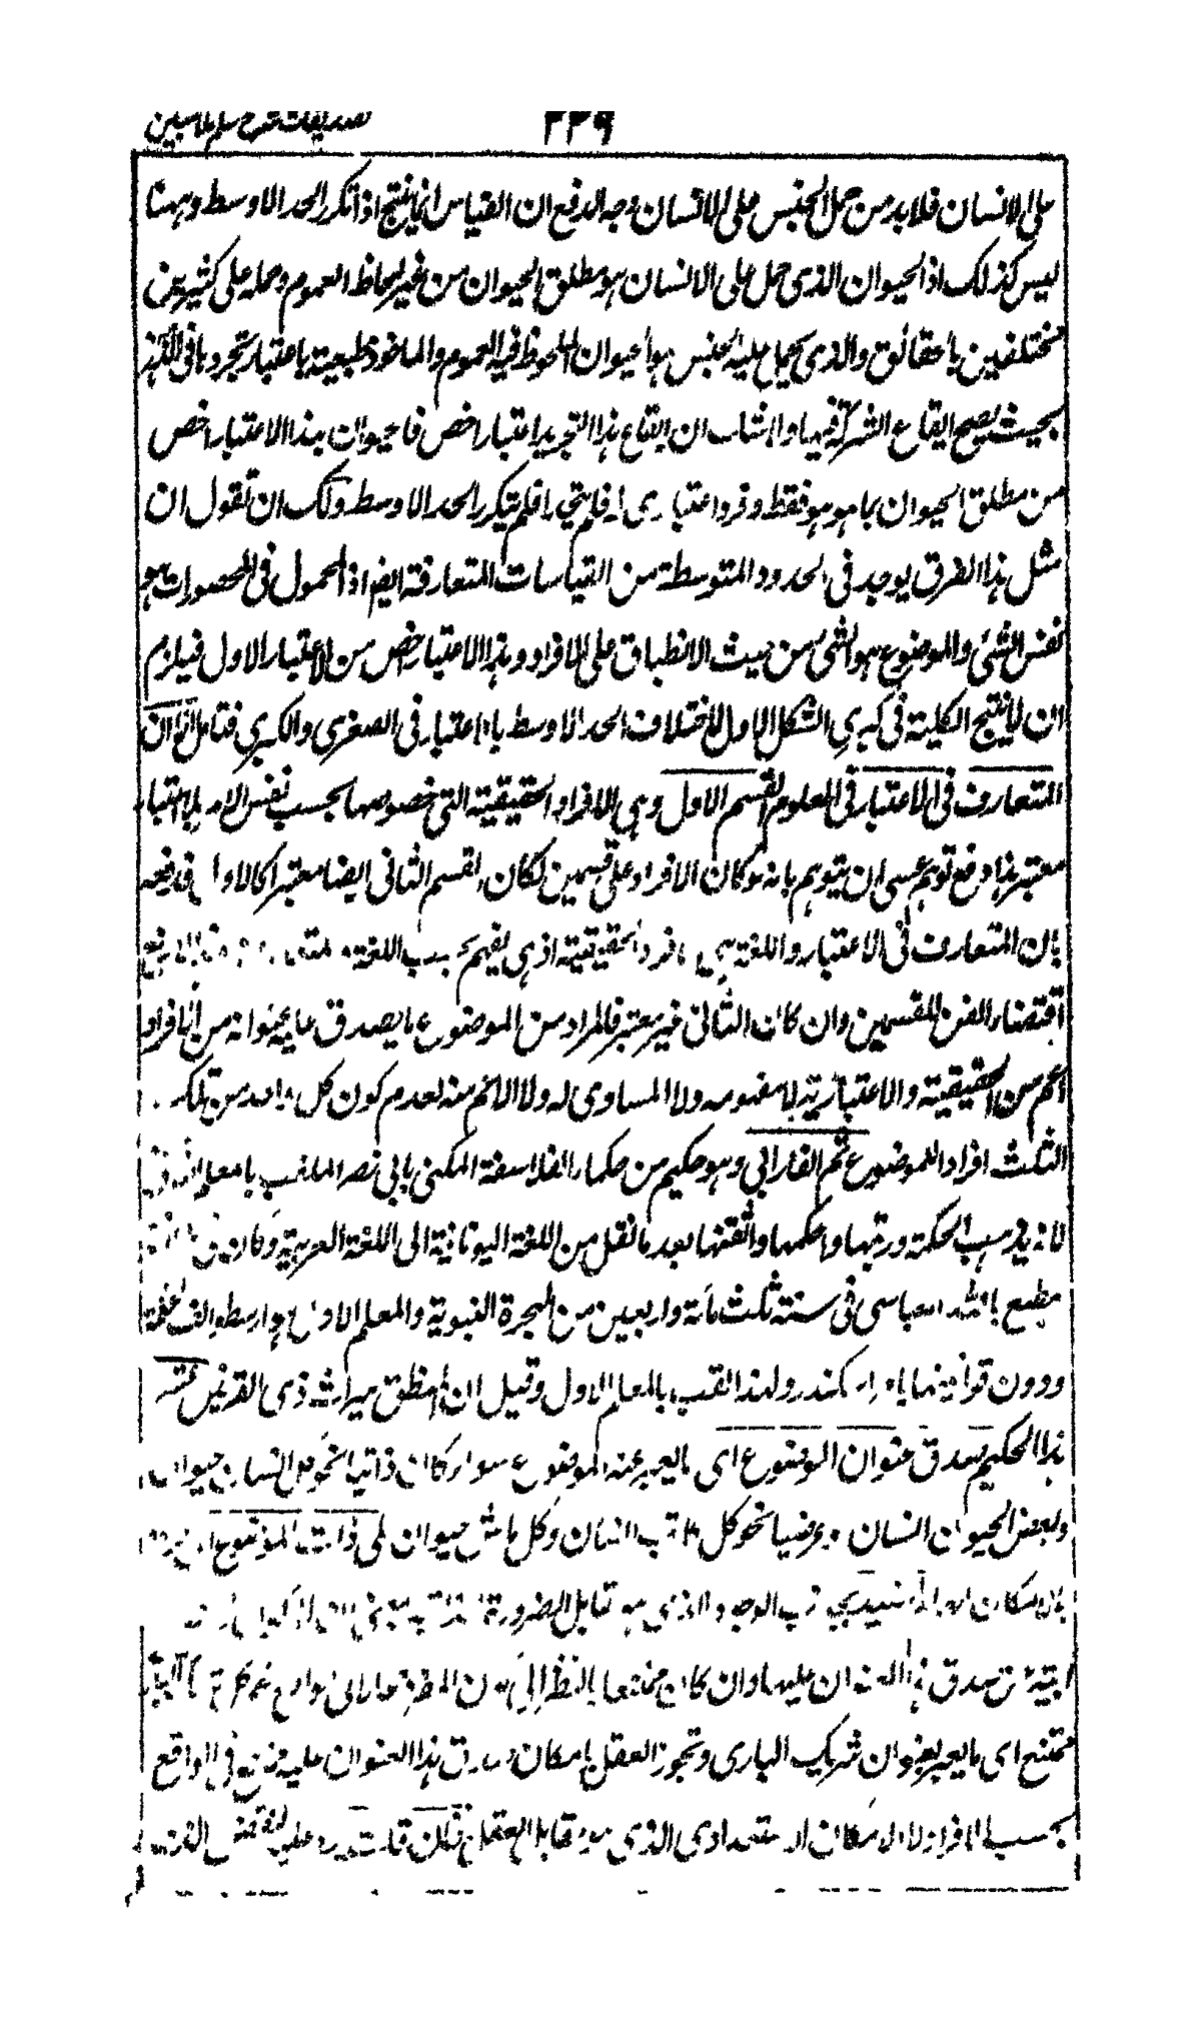 تصديقات شرح سلم ملا مبين ٢٣٩
على الانسان فلا بد من حمل الجنس على الانسان وجه الدفع ان القياس انما ينتج اذا تكرر الحد الاوسط وههنا
ليس كذلك اذ الحيوان الذى حمل على الانسان هو مطلق الحيوان من غير لحاظ العموم وحمله على كثيرين
مختلفين بالحقائق والذى يحمل عليه الجنس هو الحيوان الملحوظ فيه العموم والماخوذ طبيعية باعتبار تجردها فى الذهن
بحيث يصح ايقاع الشركة فيها ولا شك ان ايقاع هذا التجريد اعتبار اخص فالحيوان بهذا الاعتبار اخص
من مطلق الحيوان بما هو هو فقط وفرد اعتبارى له فلم يتكرر الحد الاوسط ولك ان تقول ان
مثل هذا الفرق يوجد فى الحدود المتوسطة من القياسات المتعارفة ايضا اذ المحمول فى المحصورات هو
نفس الشئ والموضوع هو الشئ من حيث الانطباق على الافراد وهذا الاعتبار اخص من الاعتبار الاول فيلزم
ان لا ينتج الكلية فى كبرى الشكل الاول لاختلاف الحد الاوسط بالاعتبار فى الصغرى والكبرى فتامل الا ان
المتعارف فى الاعتبار فى العلوم القسم الاول وهى الافراد الحقيقية التى خصوصها بحسب نفس الامر بلا اعتبار
معتبر هذا دفع توهم عسى ان يتوهم بانه لو كان الافراد على قسمين لكان القسم الثانى ايضا معتبرا كالاول فدفعه
بان المتعارف فى الاعتبار واللغة هى الافراد الحقيقية اذ هى يفهم بحسب اللغة
اقتضاء الفن للقسمين وان كان الثانى غير معتبر فالمراد من الموضوع ما يصدق عليه عنوانه من الافراد
اعم من الحقيقية والاعتبارية لا مفهومه ولا المساوى له ولا الاعم منه لعدم كون كل واحد من تلك
الثلث افراد الموضوع ثم الفارابى وهو حكيم من حكماء الفلاسفة المكنى بابى نصر الملقب بالمعلم الثانى
لانه هذب الحكمة ورتبها واحكمها واتقنها بعد ما نقل من اللغة اليونانية الى اللغة العربية وكان فى
مطيع بالله العباسى فى سنة ثلث مأة واربعين من الهجرة النبوية والمعلم الاول هو ارسطو
ودون قوانينها بامر اسكندر ولهذا لقب بالمعلم الاول وقيل ان المنطق ميراث ذى القرنين
هذا الحكيم صدق عنوان الموضوع اى ما يعبر عنه الموضوع سواء كان ذاتيا نحو كل انسان حيوان
وبعض الحيوان انسان او عرضيا نحو كل كاتب انسان وكل ماش حيوان على ذات الموضوع
بالامكان
صدق هذا العنوان عليها وان كان ممتنعا بالنظر الى
ممتنع اى ما يعبر بعنوان شريك البارى وتجوز العقل بامكان صدق هذا العنوان عليه ممتنع فى الواقع
بحسب الافراد لا الامكان الاستعدادى الذى هو مقابل الفعل فان قلت يرد عليه النقض